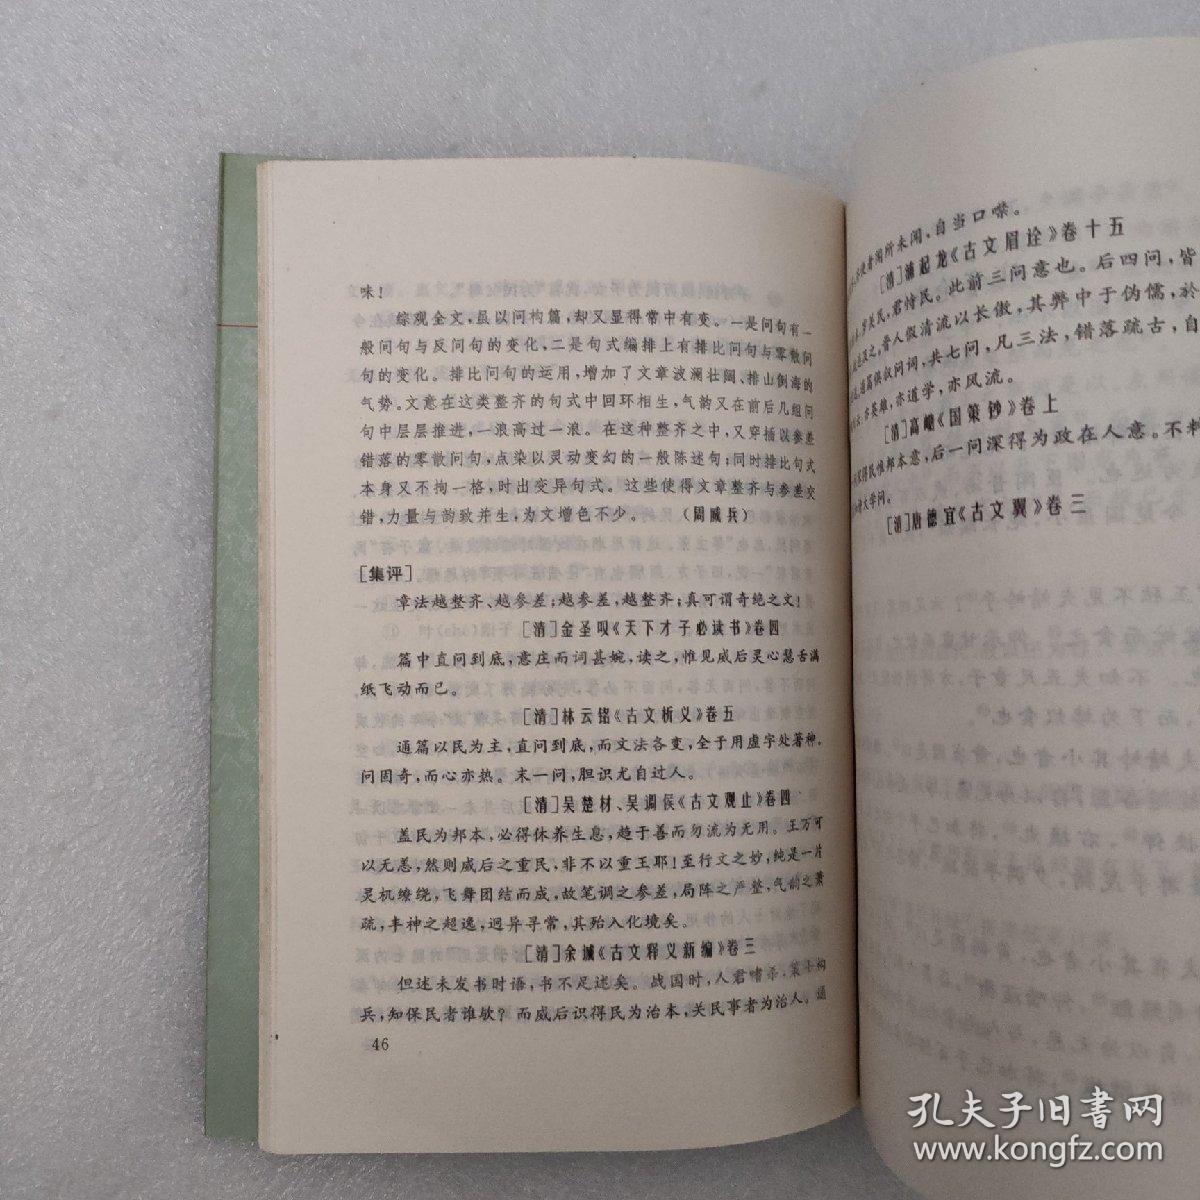 味!
综观全文,虽以问构篇,却又显得常中有变。一是问句有一
般问句与反问句的变化,二是句式编排上有排比问句与零散问
句的变化。排比问句的运用,增加了文章波澜壮阔、排山倒海的
气势。文意在这类整齐的句式中回环相生,气韵又在前后几组问
句中层层推进,一浪高过一浪。在这种整齐之中,又穿插以参差
错落的零散问句,点染以灵动变幻的一般陈述句;同时排比句式
本身又不拘一格,时出变异句式。这些使得文章整齐与参差交
错,力量与韵致并生,为文增色不少。 (周威兵)
[集评]
章法越整齐、越参差;越参差,越整齐;真可谓奇绝之文!
[清]金圣叹《天下才子必读书》卷四
篇中直问到底,意庄而词甚婉,读之,惟见威后灵心慧舌满
纸飞动而已。
[清]林云铭《古文析义》卷五
通篇以民为主,直问到底,而文法各变,全于用虚字处著神。
问固奇,而心亦热。末一问,胆识尤自过人。
[清]吴楚材、吴调侯《古文观止》卷四
盖民为邦本,必得休养生息,趋于善而勿流为无用。王万可
以无恙,然则威后之重民,非不以重王耶!至行文之妙,纯是一片
灵机缭绕,飞舞团结而成,故笔调之参差,局阵之严整,气韵之萧
疏,丰神之超逸,迥异寻常,其殆入化境矣。
[清]余诚《古文释义新编》卷三
但述未发书时语,书不足述矣。战国时,人君嗜杀,策士构
兵,知保民者谁欤?而威后识得民为治本,关民事者为治人。通
46
使者闻所未闻,自当口噤。
[清]浦起龙《古文眉诠》卷十五
岁美民,君恃民。此前三问意也。后四问,皆
及之。晋人假清流以长傲,其弊中于伪儒,於
通篇俱叙问词,共七问,凡三法,错落疏古,自
亦英雄,亦道学,亦风流。
[清]高嵣《国策钞》卷上
得民惟邦本意,后一问深得为政在人意。不
大学问。
[清]唐德宜《古文翼》卷三
孔夫子旧书网
www.kongfz.com